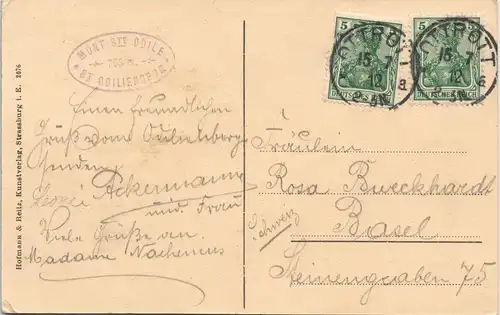 MONT STE ODILE
763 m.
ODILIENBERG
Einen freundlichen
Gruß vom Odilienberg
senden
Ackermann
und Frau
Viele Grüße an
Madame Nachenius
Hofmann & Reitz, Kunstverlag, Strassburg i. E. 2076
5
5
DEUTSCHES REICH
DEUTSCHES REICH
OTTROTT
15 7
12
a
OTTROTT
15 7
12
a
Fräulein
Rosa Burckhardt
Basel
Schweiz
Steinengraben 75